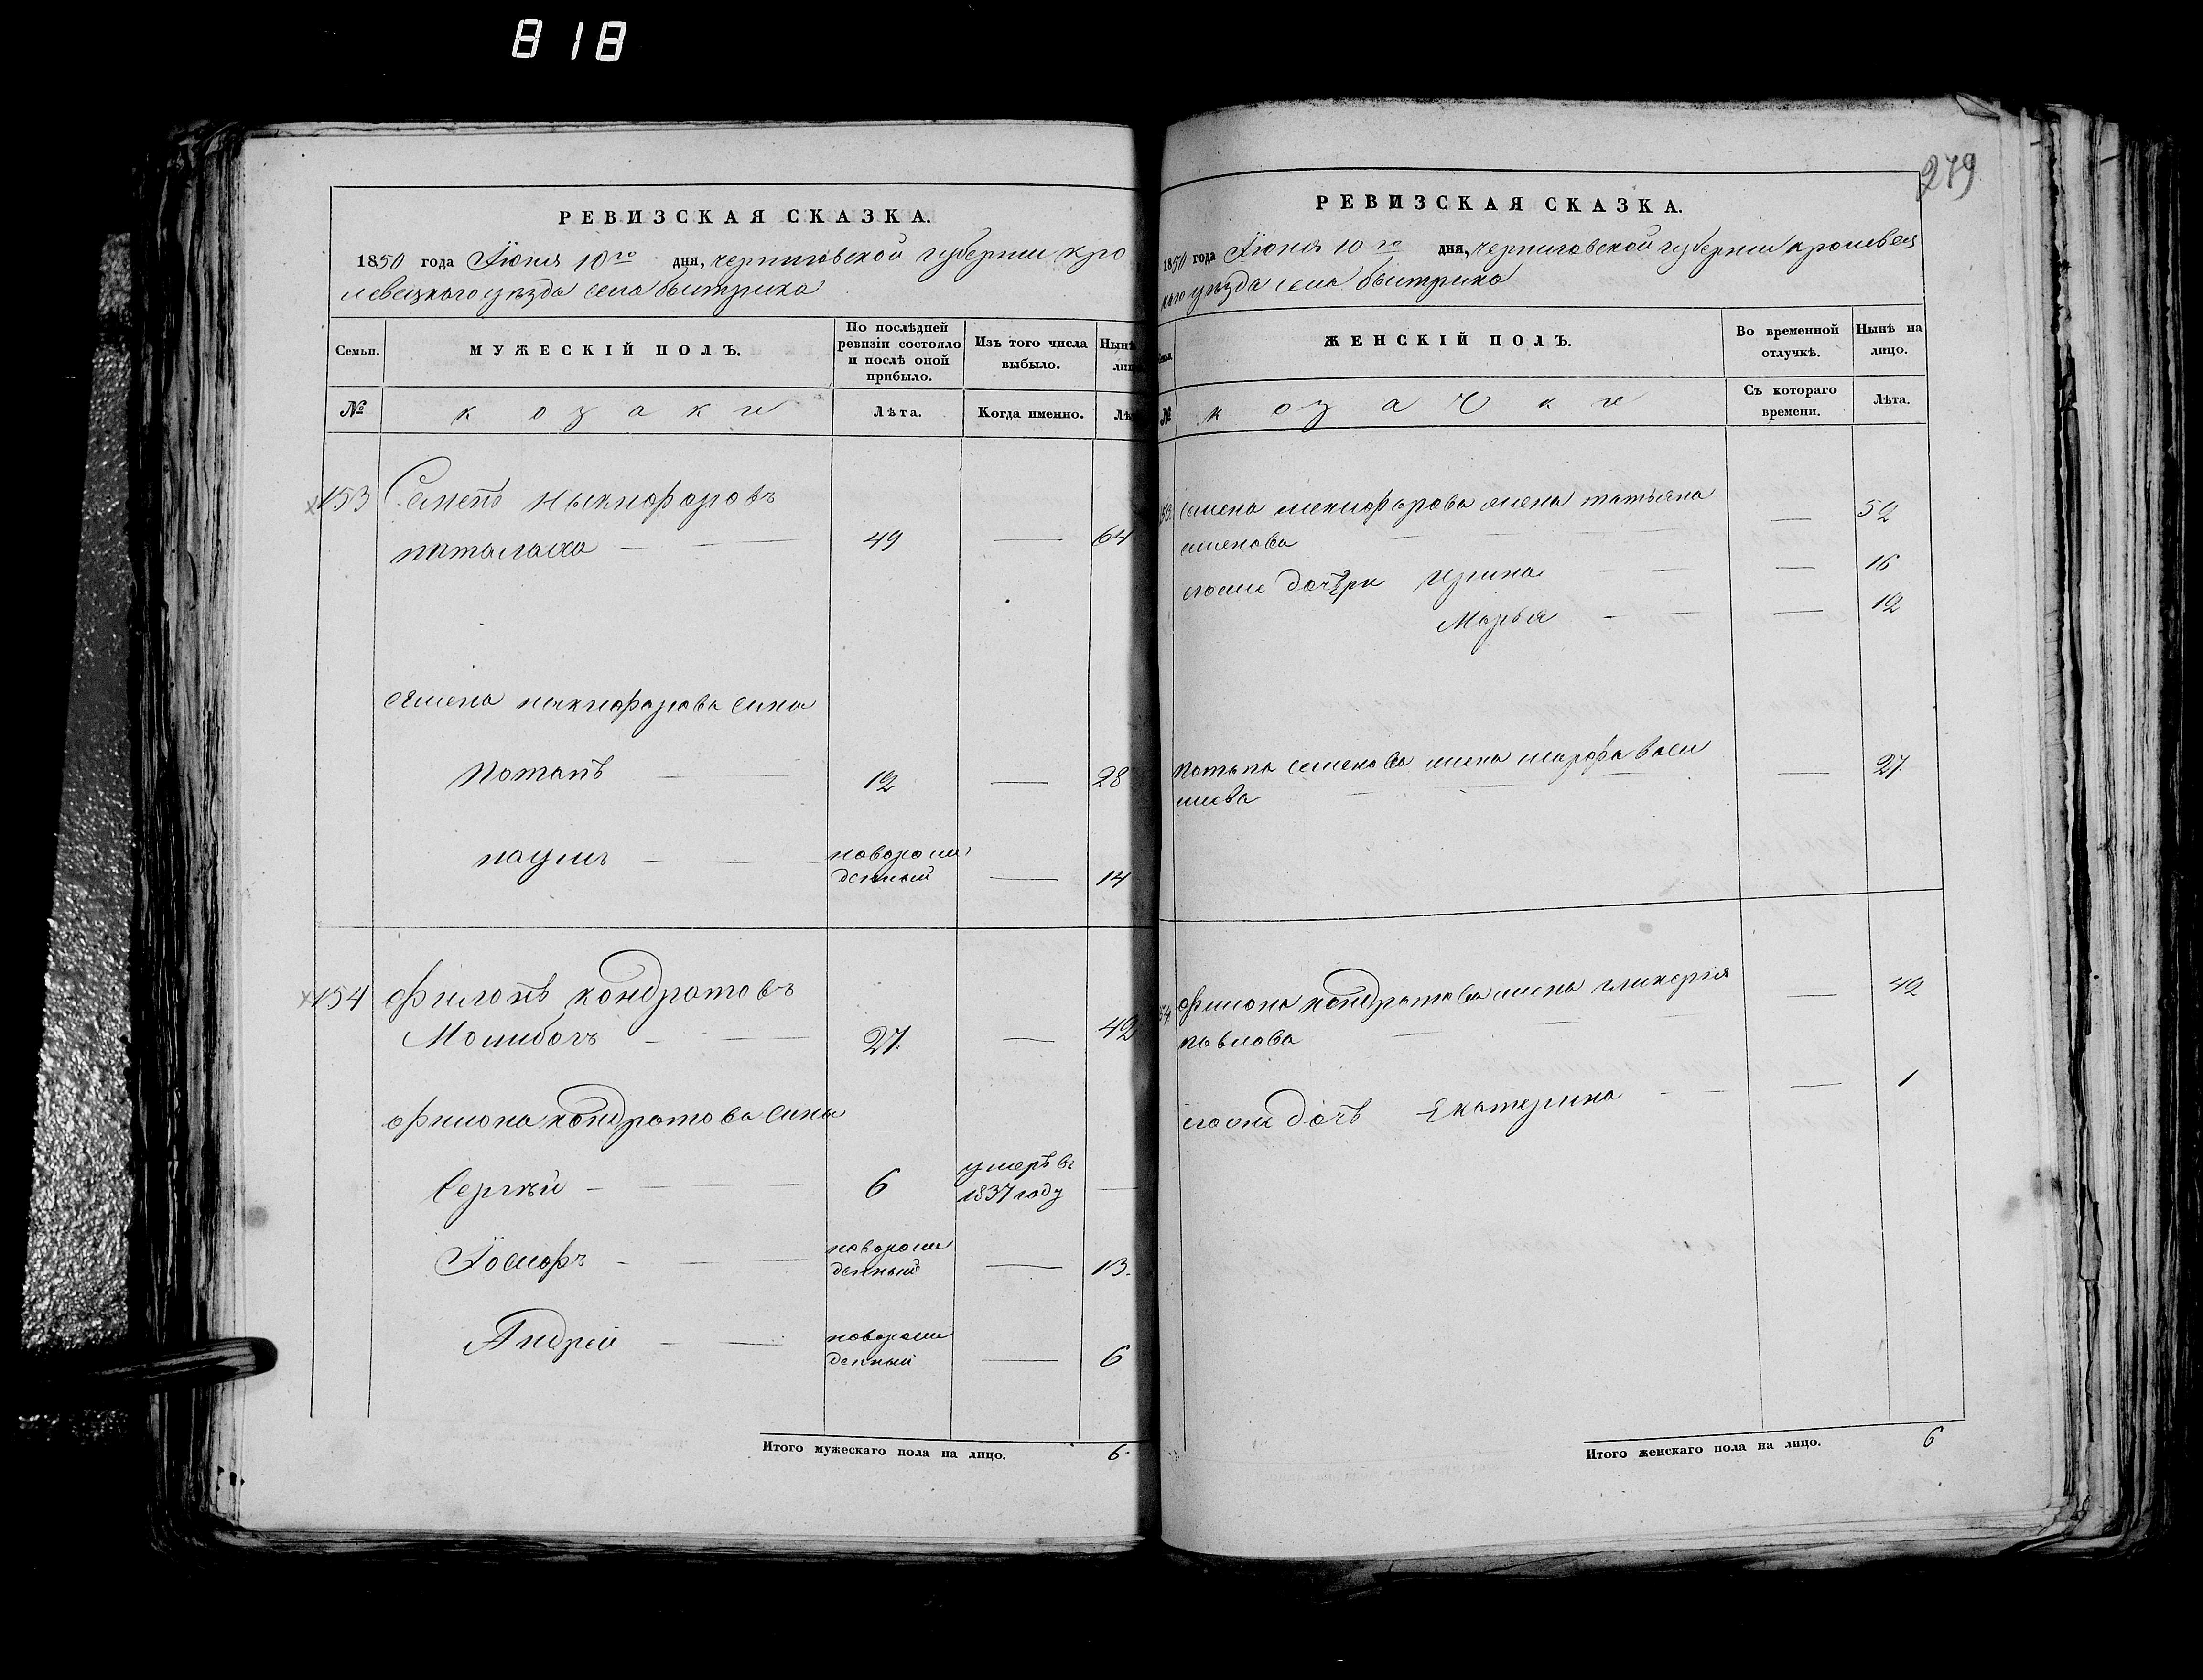 818
279
РЕВИЗСКАЯ СКАЗКА.
1850 года Іюня 10го дня, черниговской губернии кро
левецкаго уезда села быстрика
Семьи.
МУЖЕСКІЙ ПОЛЪ.
По послѣдней ревизіи состояло и послѣ оной прибыло.
Изъ того числа выбыло.
Нынѣ
лиц
№
козаки
Лѣта.
Когда именно.
Лѣ
153 Семенъ Никифоровъ
49 — 64
Семена никифорова сины
Потапъ — 12 — 28
наумъ — — новорож
денный — 14
154 Филонъ кондратовъ
27. — 42
Филона кондратова сины
Сергѣй — — — — 6 умеръ в
1837 году —
Іосифъ — — — новорож
денный — 13.
Андрей — — новорож
денный — 6
Итого мужескаго пола на лицо. 6.
РЕВИЗСКАЯ СКАЗКА.
1850 года Іюня 10го дня, черниговской губернии кролевец
каго уезда села быстрика
ЖЕНСКІЙ ПОЛЪ.
Во временной отлучкѣ.
Нынѣ на лицо.
№
козачки
Съ котораго времени.
Лѣта.
153 Семена никифорова жена татьяна — 52
семенова
его же дочери Ирина — — — 16
Марья — — — 12
Потапа семенова жена марфа васи — 27.
лиева
54 Филона кондратова жена гликерия — 42
павлова
его же дочь Екатерина — — — 1
Итого женскаго пола на лицо. 6